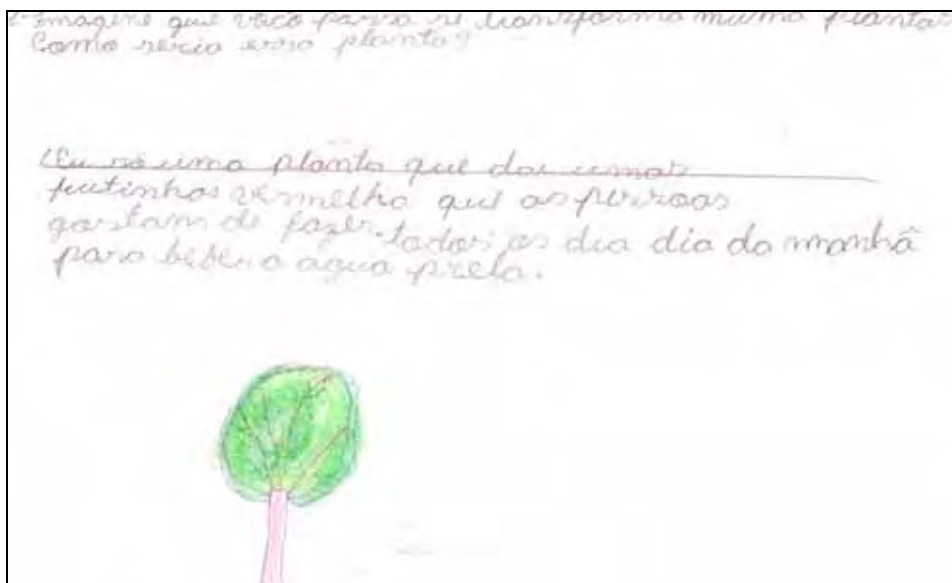 imagine que você possa se transforma numa planta.
Como seria essa planta?
Eu so uma planta que dou umas
frutinhas vermelha que as pessoas
gostam de fazer todos os dia dia da manhã
para beber a agua preta.